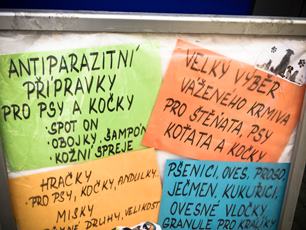 ANTIPARAZITNÍ
PŘÍPRAVKY
PRO PSY A KOČKY
• SPOT ON
• OBOJKY, ŠAMPÓN
• KOŽNÍ SPREJE
VELKÝ VÝBĚR
VÁŽENÉHO KRMIVA
PRO ŠTĚŇATA, PSY
KOŤATA A KOČKY
HRAČKY
• PRO PSY, KOČKY, ANDULKY
MISKY
DRUHY, VELIKOST
PŠENICI, OVES, PROSO,
JEČMEN, KUKUŘICI,
OVESNÉ VLOČKY,
GRANULE PRO KRÁLÍKY